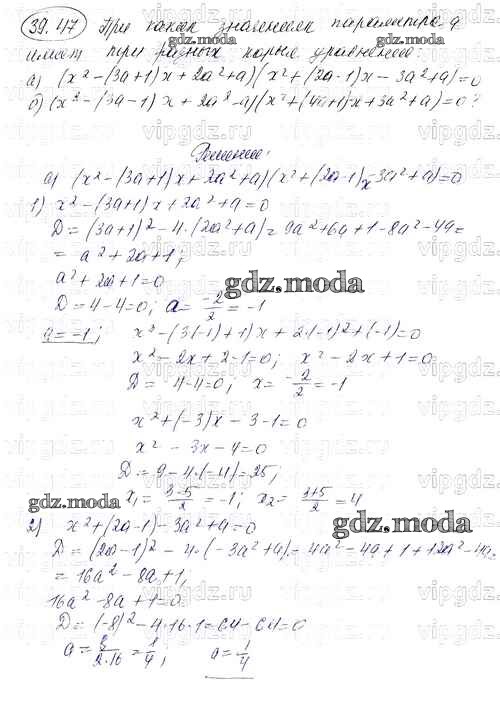 39.47 При каких значениях параметра a
имеет три разных корня уравнение:
а) (x² - (3a+1)x + 2a² + a)(x² + (2a-1)x - 3a² + a) = 0
б) (x² - (3a-1)x + 2a² - a)(x² + (4a+1)x + 3a² + a) = 0?
Решение:
а) (x² - (3a+1)x + 2a² + a)(x² + (2a-1)x - 3a² + a) = 0
1) x² - (3a+1)x + 2a² + a = 0
D = (3a+1)² - 4·(2a² + a) = 9a² + 6a + 1 - 8a² - 4a =
= a² + 2a + 1;
a² + 2a + 1 = 0
gdz.moda
D = 4 - 4 = 0; a = -2/2 = -1
a = -1; x² - (3(-1)+1)x + 2·(-1)² + (-1) = 0
x² - 2x + 2 - 1 = 0; x² - 2x + 1 = 0
D = 4-4=0; x = -2/2 = -1
x² + (-3)x - 3 - 1 = 0
x² - 3x - 4 = 0
D = 9 - 4·(-4) = 25;
gdz.moda
x₁ = 3-5/2 = -1; x₂ = 3+5/2 = 4
gdz.moda
2) x² + (2a-1) - 3a² + a = 0
D = (2a-1)² - 4·(-3a² + a) = 4a² - 4a + 1 + 12a² - 4a =
= 16a² - 8a + 1;
16a² - 8a + 1 = 0
D = (-8)² - 4·16·1 = 64 - 64 = 0
a = 8/2·16 = 1/4; a = 1/4